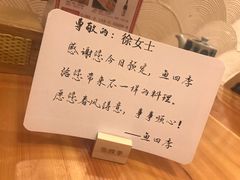 尊敬的：徐女士
感谢您今日预定，鱼四季
给您带来不一样的料理。
愿您春风得意，事事顺心！
——鱼四季